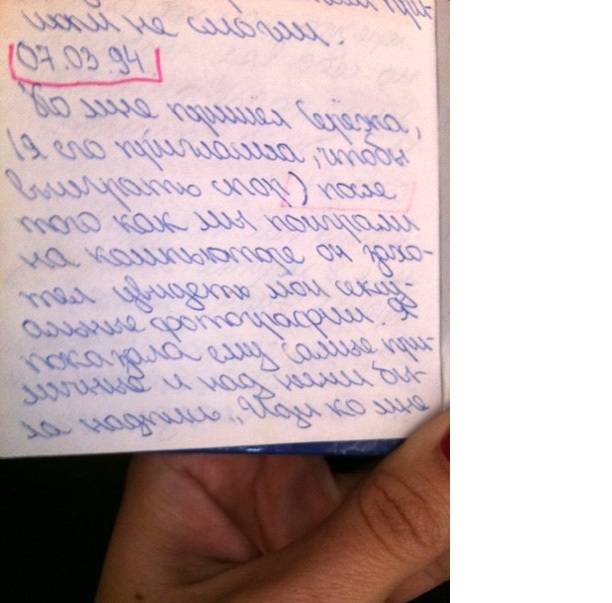 ики не смогли.
07.03.94
Ко мне пришёл Серёжа,
(я его пригласила, чтобы
выиграть спор) после
того как мы поиграли
на компьютере он захо-
тел увидеть мои сексу-
альные фотографии. Я
показала ему самые при-
личные и над ними бы-
ла надпись „Иди ко мне